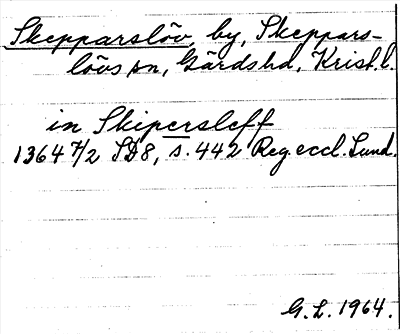 Skepparslöv, by, Skeppars-
lövs sn, Gärds hd, Krist. l.
in Skipersleff
1364 7/2 SD8, s. 442 Reg. eccl. Lund.
G. L. 1964.